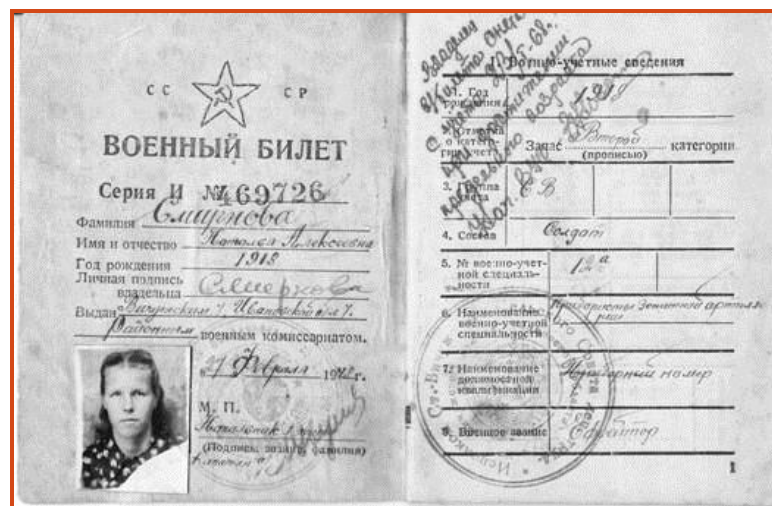 СС СР
ВОЕННЫЙ БИЛЕТ
Серия И № 469726
Фамилия Смирнова
Имя и отчество Наталья Алексеевна
Год рождения 1918
Личная подпись
владельца Смирнова
Выдан Вичугским
Районным военным комиссариатом.
27 февраля 19 г.
М. П.
Начальник
(Подпись, звание, фамилия)
Владелец
билета
с учета 68
при достижении
предельного возраста
1. Военно-учетные сведения
1. Год
рождения 1918
2. Отметка
о катего-
рии учета Запас Второй категории
(прописью)
3. Группа
учета
4. Состав Солдат
5. № военно-учет-
ной специаль-
ности 12а
6. Наименование
военно-учетной
специальности Прибористы Зенитной артилле-
рии
7. Наименование
должностной
квалификации Приборный номер
8. Военное звание Ефрейтор
1